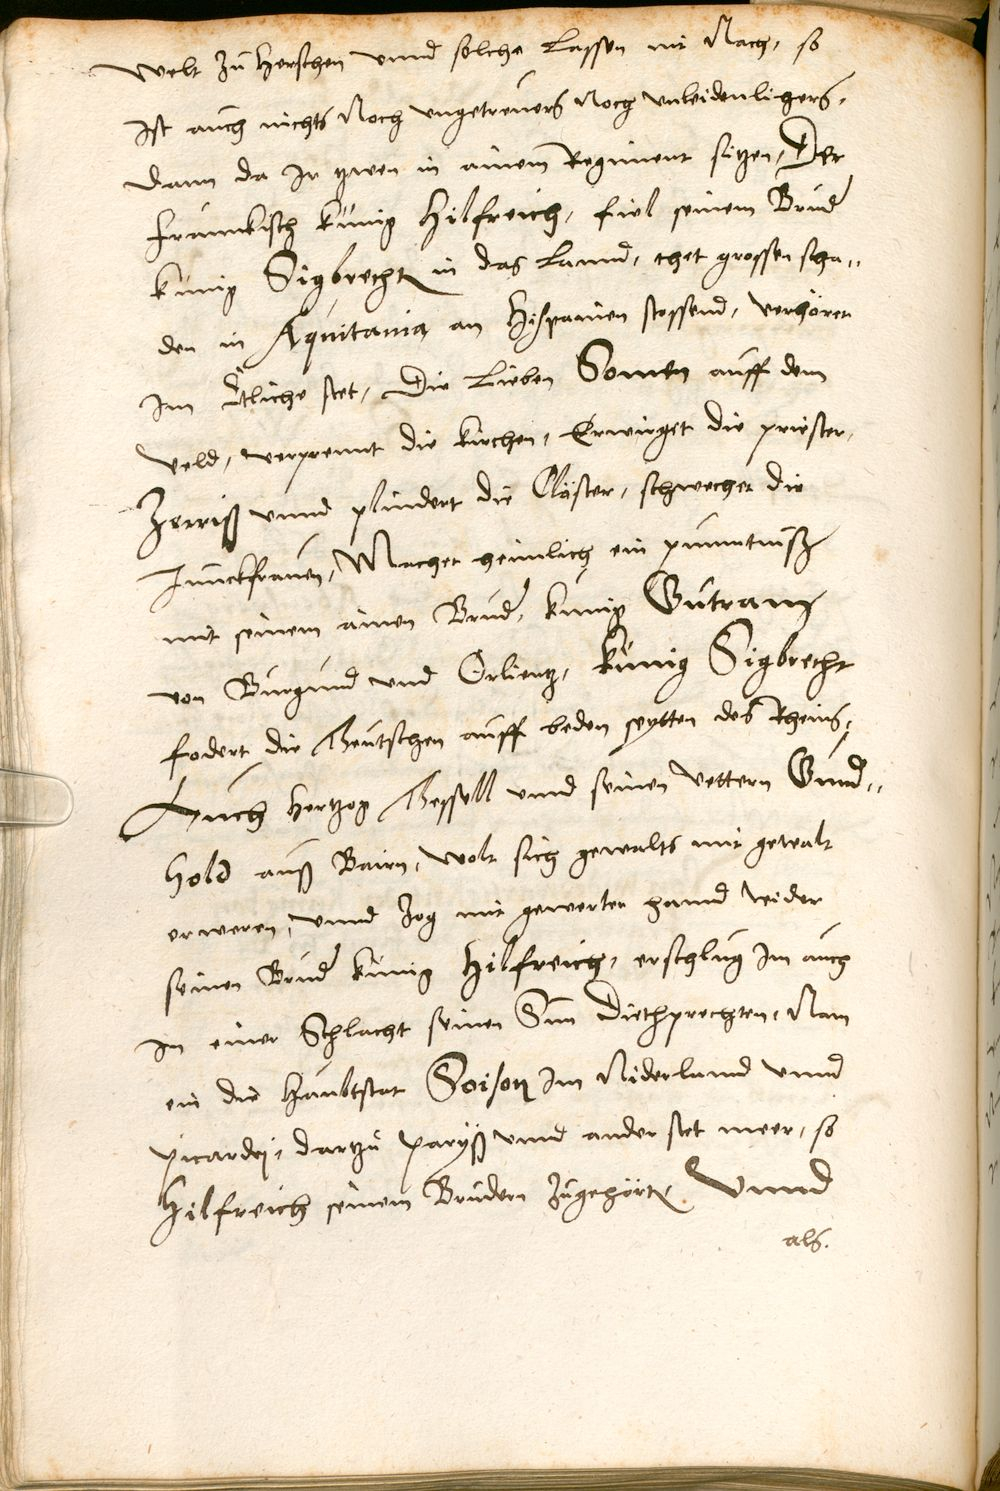 Welt zu Herschen vnnd solche Lassen nit Nach, so
Ist auch nichts Noch vngetreuers Noch vnleidenlichers,
dann da Ir zwen in ainem Regiment sitzen, Der
Frannkisch künig Hilfreich, fiel seinem Brud
künig Sigbrecht in das Lannd, thet grossen scha„
den in Aquitania an Hispanien stossend, verhöret
Im Etliche stet, Die Lieben Somen auff dem
veld, verprennt die kirchen, Erwürget die priester,
Zerriß vnnd plündert die Clöster, schwechet die
Junckfrauen, Machet heimlich ein pünntnüß
mit seinem ainen Brud, künig Gutran
von Burgund vnd Orlientz, künig Sigbrecht
fodert die Theutschen auff beden seytten des Rheins,
Auch Hertzog Thessell vnnd seinen Vettern Gund„
hold auß Bairn, wolt sich gewalts mit gewalt
erweren, vnnd Zog mit gewerter hannd wider
seinen Brud künig Hilfreich, erschlug Im auch
in einer Schlacht seinen Sun Diethprechten, Nam
ein die Haubtstat Soison Im Niderlannd vnnd
Picardej, dartzu Paryß vnnd ander stet meer, so
Hilfreich seinem Brudern Zugehört, Vnnd
als.